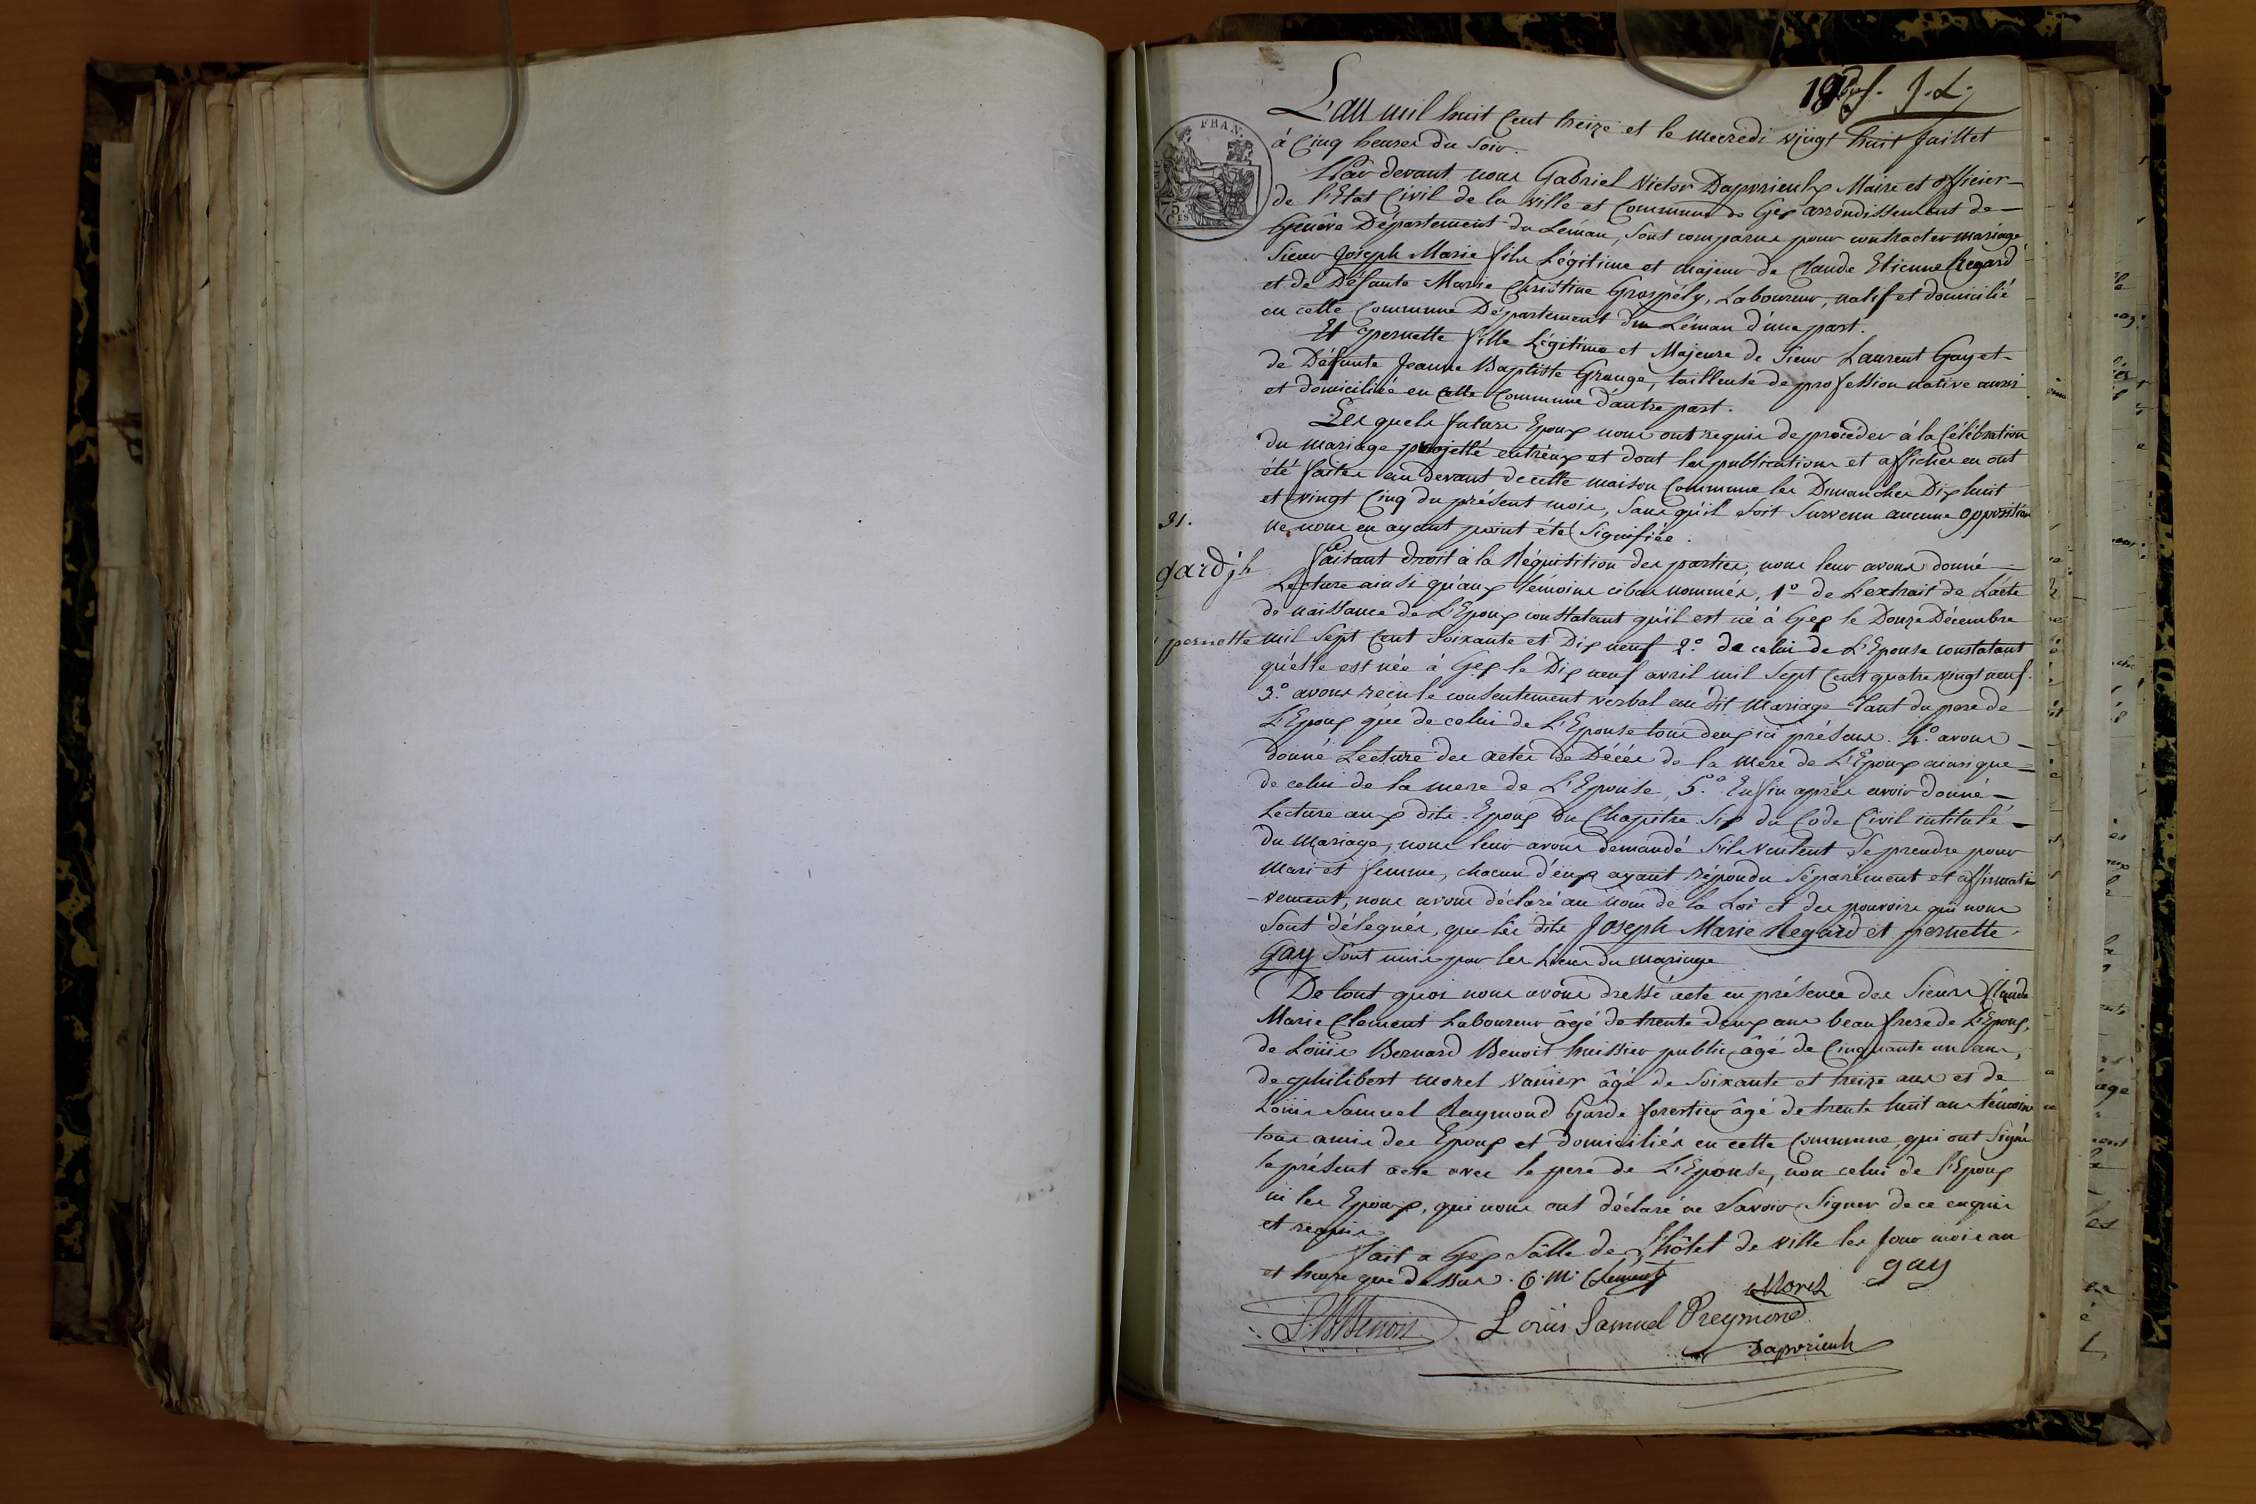 L'an mil huit Cent treize et le mecredi vingt huit Juillet
à Cinq heures du Soir.
FRAN.
Par devant nous Gabriel Victor Dapvrieulx Maire et officier
de l'Etat Civil de la ville et Commune de Gex arrondissement de
Genève Département du Léman, Sont comparus pour contracter mariage
Sieur Joseph Marie fils Légitime et majeur de Claude Etienne Regard
et de Défunte Marie Christine Grospély, Laboureur, natif et domicilié
en cette Commune Département du Léman d'une part.
Et pernette fille Légitime et Majeure de Sieur Laurent Gay et
de Défunte Jeanne Baptiste Grange, tailleuse de profession native aussi
et domiciliée en cette Commune d'autre part.
Lesquels futurs Epoux nous ont requis de procéder à la Célébration
du mariage projetté entr'eux et dont les publications et affiches en ont
été faites au devant de cette maison Commune les Dimanches Dix huit
et vingt Cinq du présent mois, Sans qu'il soit Survenu aucune opposition
ne nous en ayant point été Signifiée.
31.
gard jh
pernette
faisant droit à la Réquisition des parties, nous leur avons donné
Lecture ainsi qu'aux témoins cibas nommés, 1o de L'extrait de L'acte
de naissance de L'Epoux constatant qu'il est né à Gex le Douze Décembre
mil Sept Cent Soixante et Dix neuf 2o de celui de L'Epouse constatant
qu'elle est née à Gex le Dix neuf avril mil Sept Cent quatre vingt neuf.
3o avons reçu le consentement verbal au dit Mariage tant du pere de
L'Epoux que de celui de L'Epouse tous deux ici présens. 4o avons
donné Lecture des actes de Décès de la mere de L'Epoux ainsi que
de celui de la mere de L'Epouse, 5o Enfin après avoir donné
Lecture aux dits Epoux du Chapitre Six du Code Civil intitulé
du Mariage, nous leur avons demandé S'ils veulent Se prendre pour
Mari et femme, chacun d'eux ayant répondu Séparément et affirmati-
-vement, nous avons déclaré au nom de la Loi et des pouvoirs qui nous
Sont délégués, que les dits Joseph Marie Regard et pernette
Gay Sont unis par les Liens du mariage
De tout quoi nous avons dressé acte en présence des Sieurs Claude
Marie Clement Laboureur âgé de trente deux ans beau frere de L'Epoux,
de Loüis Bernard Benoit huissier public âgé de Cinquante un ans,
de philibert Morel vanier âgé de Soixante et treize ans et de
Loüis Samuel Raymond Garde forestier âgé de trente huit ans témoins
tous amis des Epoux et domiciliés en cette Commune, qui ont Signé
le présent acte avec le pere de L'Epouse, non celui de l'Epoux
ni les Epoux, qui nous ont déclaré ne Savoir Signer de ce enquis
et requis
fait a Gex Sâlle de l'hôtel de ville les jour mois an
et heure que dessus. C. M. Clement Morel gay
L B Benoit Loüis Samuel Reymond
Dapvrieulx